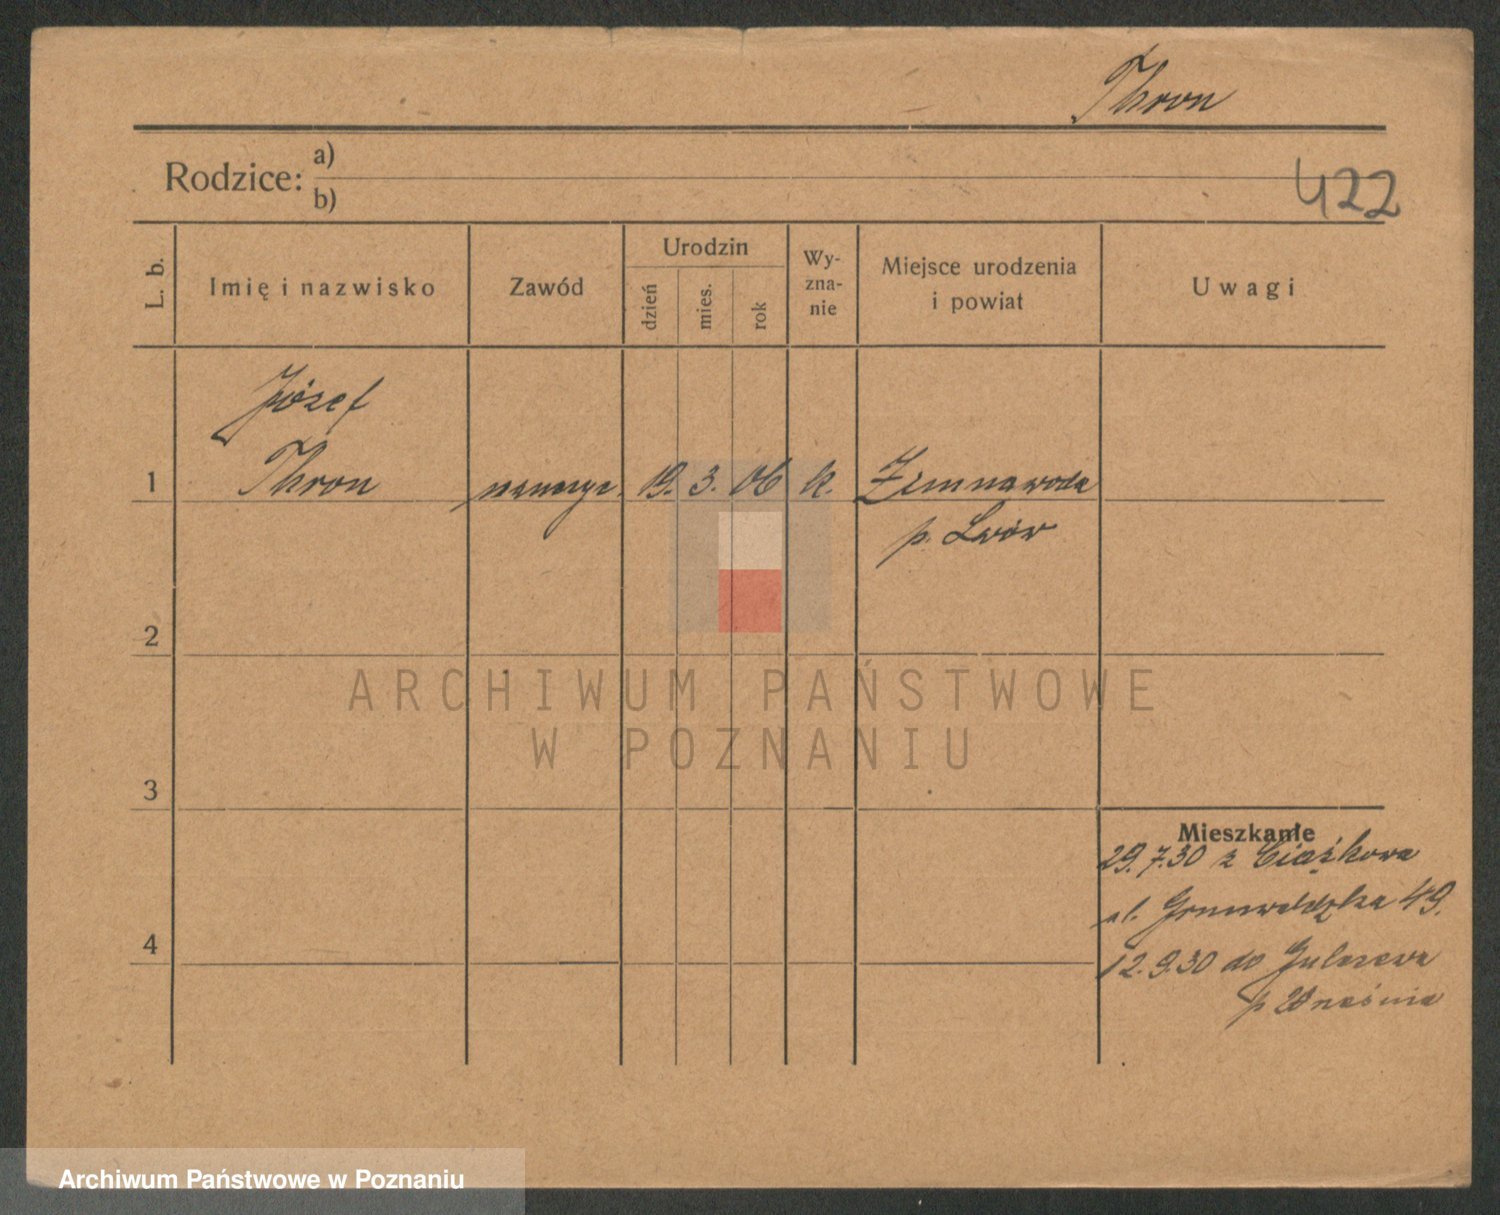 Thron
Rodzice: a)
b)
422
L. b.
Imię i nazwisko
Zawód
Urodzin
dzień
mies.
rok
Wy-
zna-
nie
Miejsce urodzenia
i powiat
Uwagi
Józef
1 Thron 19. 3. 06 k. Zimnawoda
p. Lwów
2
3
4
Mieszkanie
29.7.30 z Ciążkowa
ul. Grunwaldzka 49.
12.9.30 do
p Września
ARCHIWUM PAŃSTWOWE
W POZNANIU
Archiwum Państwowe w Poznaniu